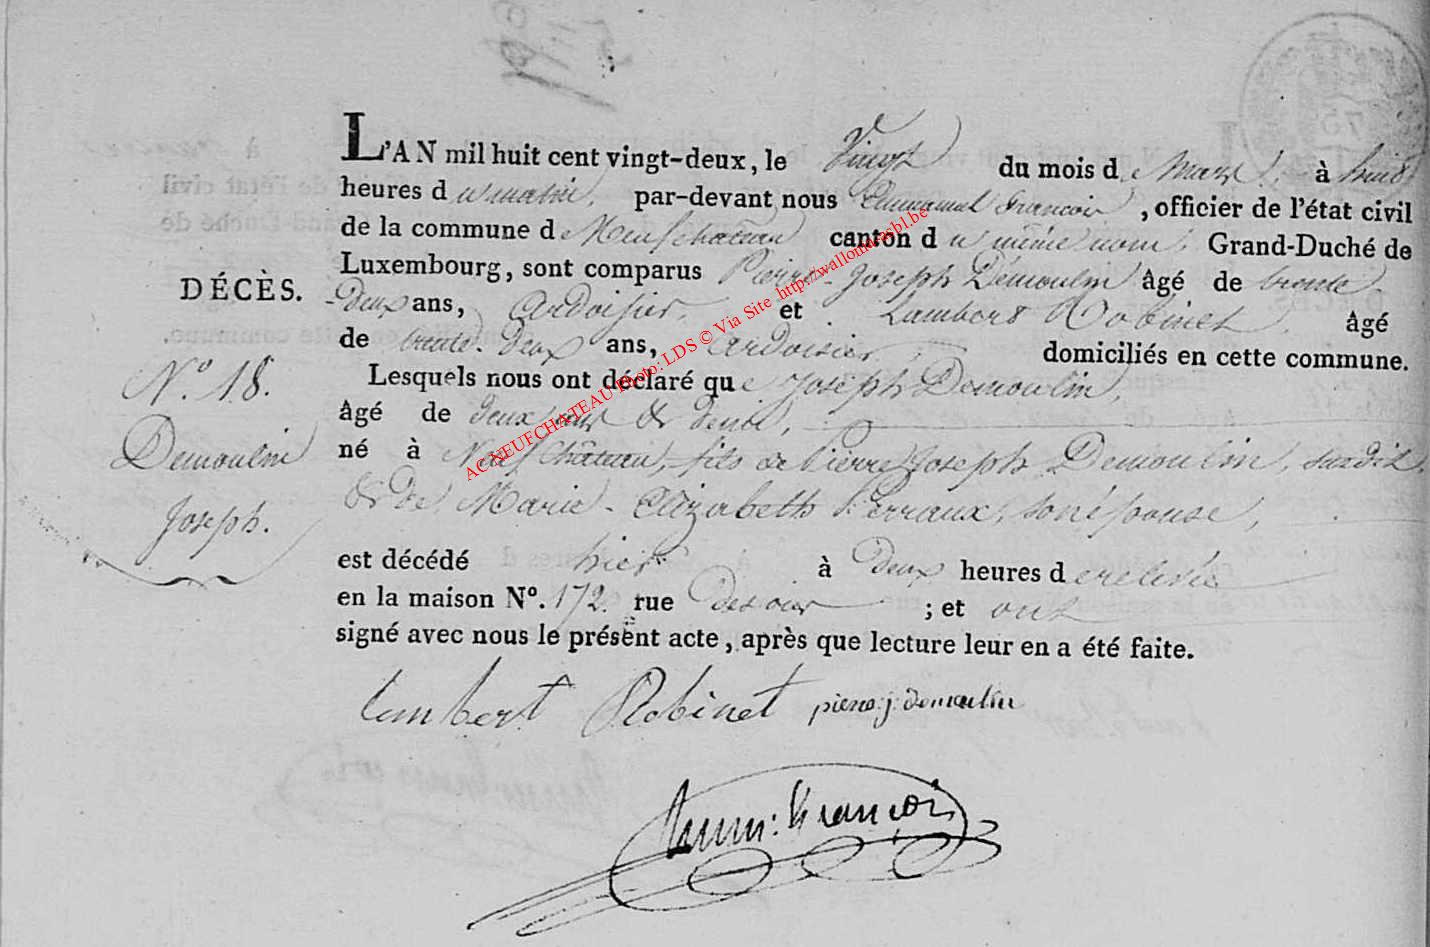 L'AN mil huit cent vingt-deux, le Vingt du mois de Mars, à huit
heures du matin, par-devant nous Emmanuel François, officier de l'état civil
de la commune de Neufchateau canton du même nom, Grand-Duché de
Luxembourg, sont comparus Pierre-Joseph Demoulin âgé de trente
DÉCÈS.
-deux ans, Ardoisier, et Lambert Robinet, âgé
de trente-deux ans, Ardoisier domiciliés en cette commune.
Lesquels nous ont déclaré que Joseph Demoulin,
N.° 18.
Demoulin
Joseph.
âgé de deux ans & demi,
né à Neufchâteau, fils de Pierre Joseph Demoulin, susdit,
& de Marie-Elizabeth Perraux, son épouse,
est décédé hier à Deux heures de relevée
en la maison N°. 172. rue ; et ont
signé avec nous le présent acte, après que lecture leur en a été faite.
Lambert Robinet pierre j demoulin
Emm: François
AC NEUFCHATEAU Photo: LDS © Via Site http://wallonia-asbl.be